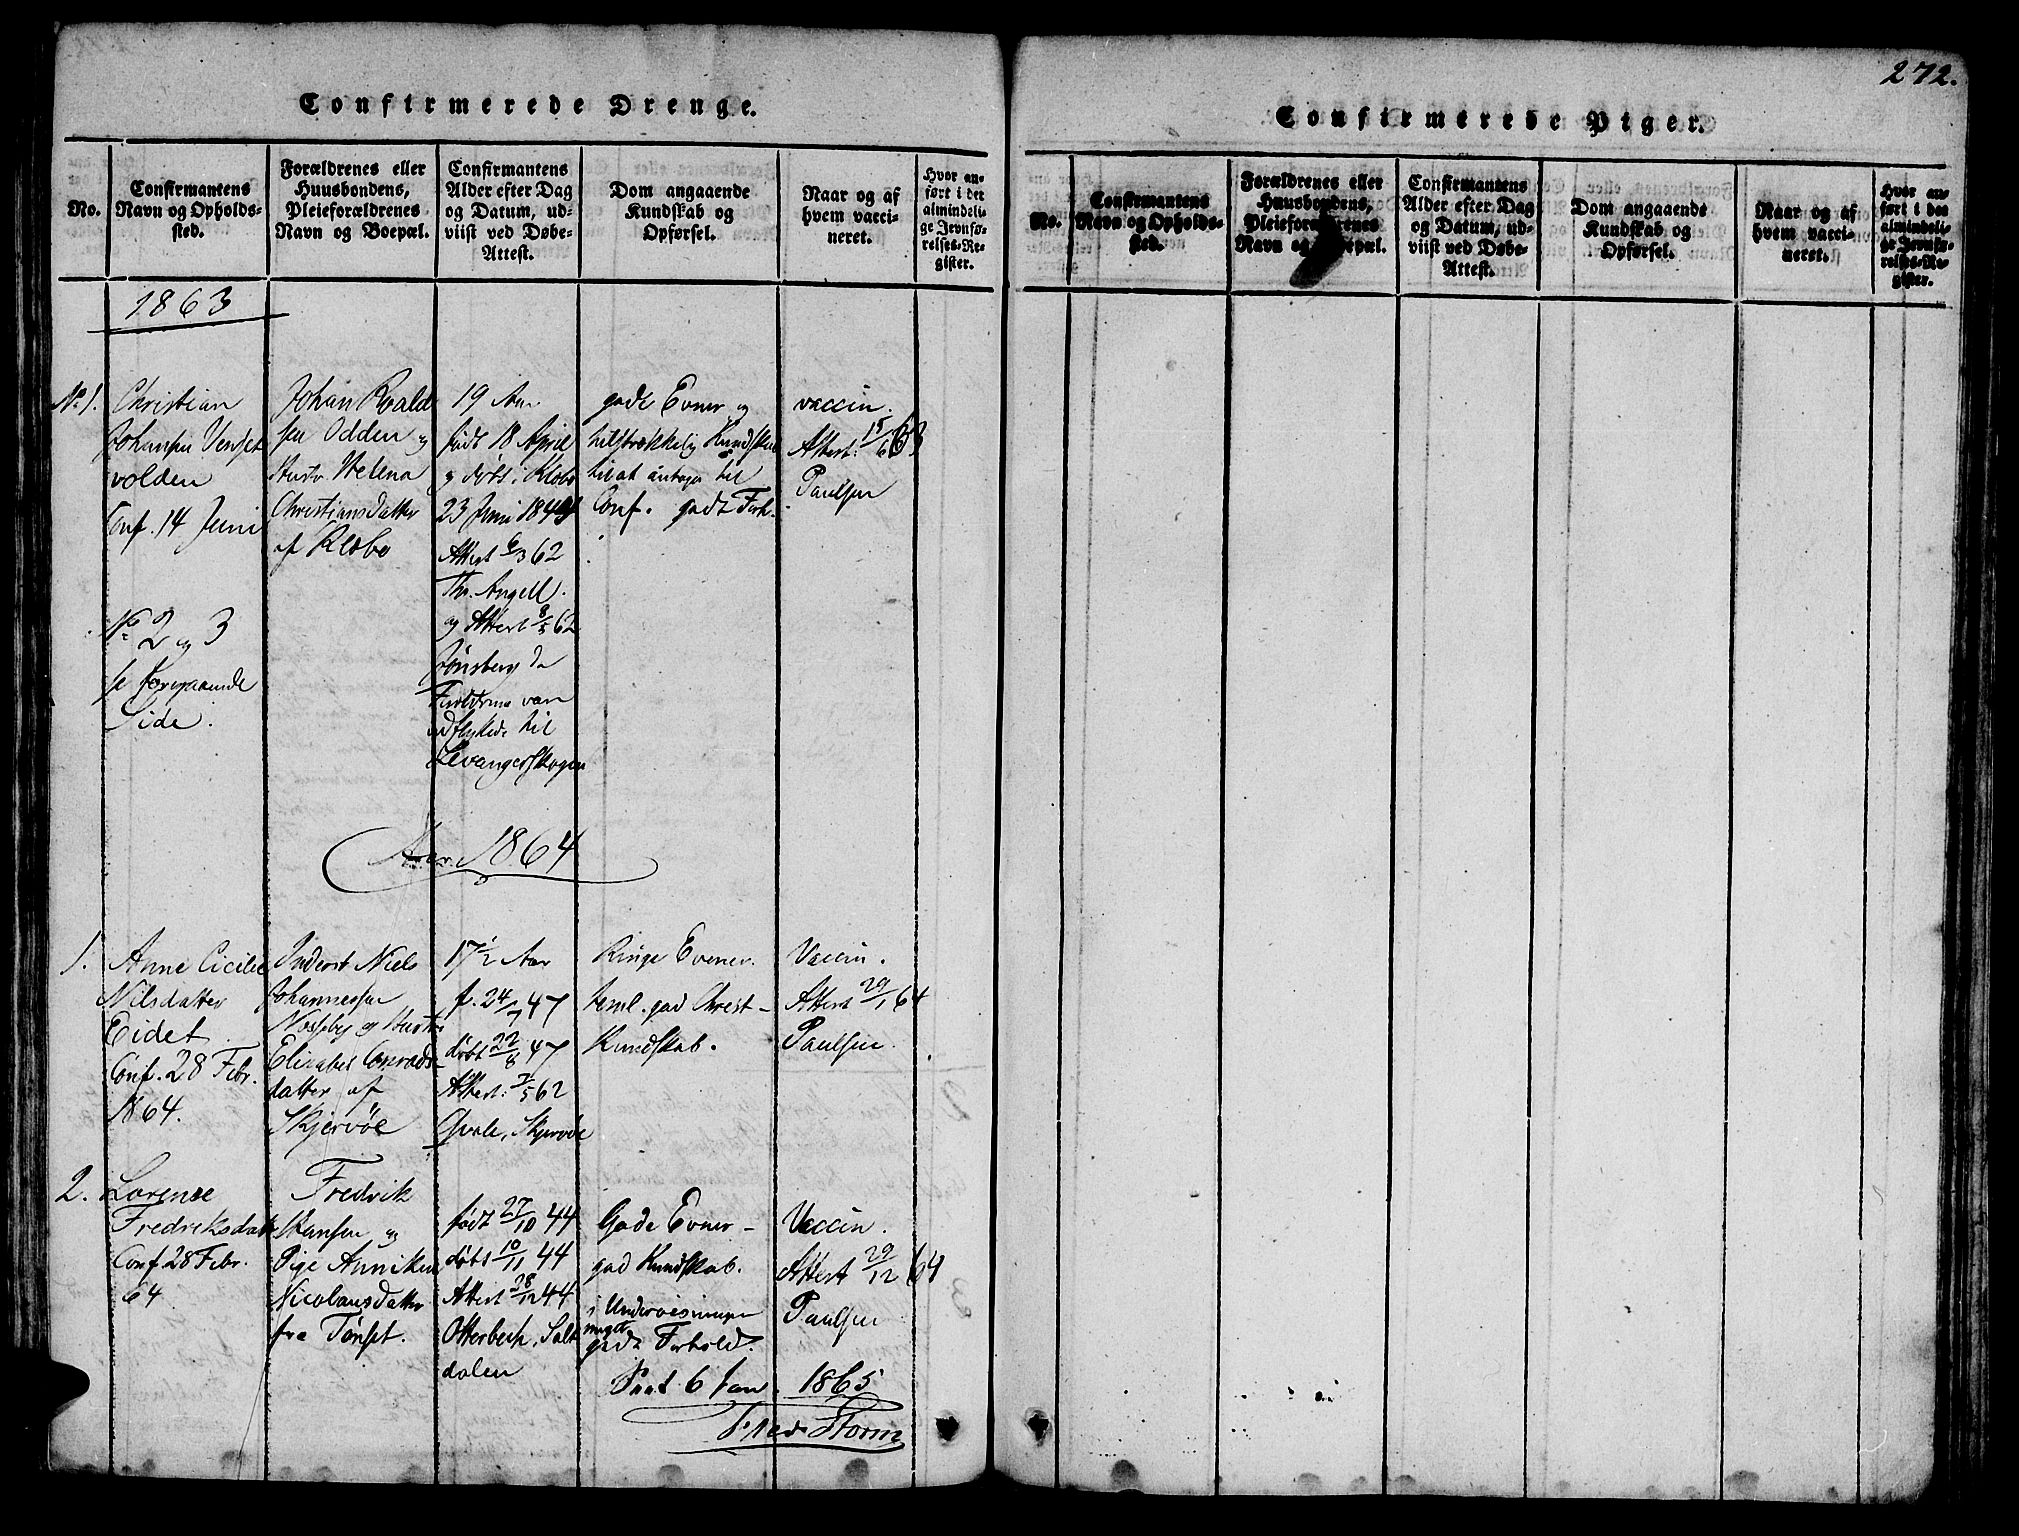 Confirmerede Drenge.
No.
Confirmantens
Navn og Opholds-
sted.
Forældrenes eller
Huusbondens,
Pleieforældrenes
Navn og Boepæl.
Confirmantens
Alder efter Dag
og Datum, ud-
viist ved Døbe-
Attest.
Dom angaaende
Kundskab og
Opførsel.
Naar og af
hvem vacci-
neret.
Hvor an-
ført i det
almindeli-
ge Jevnfø-
relses-Re-
gister.
1863
No 1.
Christian
Johansen
volden
Conf. 14 Juni
Johan Roald
sen Odden og
Hustr. Helena
Christiansdatter
af Klæbo
19 Aar
født 18 April
og døbt i Klæbo
23 Juni 1844
Attest 6/3 62
Th. Angell.
og Attest 8/5 62
Jønsberg da
Forældrene var
udflyttede til
Levangerskogen
gode Evner og
tilstrækkelig Kundskab
til at antages til
Conf. godt Forh.
vaccin.
Attest: 15/6 63
Paulsen
No 2 og 3
se foregaaende
Side.
Aar 1864
1.
Anne Cicilie
Nilsdatter
Eidet
Conf. 28 Febr.
1864.
Inderst Niels
Johannessen
og Hustr.
Elisabet Conrads-
datter af
Skjervöe
17 1/2 Aar
f. 24/7 47
døbt 22/8 47
Attest: 7/5 62
Qvale, Skjervöe
Ringe Evener.
teml. god Christ-
Kundskab.
Vaccin.
Attest 29/1 64
Paulsen
2.
Lorense
Fredriksdatt
Conf 28 Febr.
64
Fredrik
Hansen og
Pige Anniken
Nicolausdatter
fra Tønset.
født 27/10 44
døbt 10/11 44
Attest 28/12 44
Otterbech, Salt
dalen
Gode Evner -
god Kundskab.
i Undervisningen
meget
godt Forhold.
Vaccin.
Attest 29/12 64
Paulsen
Seet 6 Jan. 1865
Storm
272.
Confirmerede Piger.
No.
Confirmantens
Navn og Opholds-
sted.
Forældrenes eller
Huusbondens,
Pleieforældrenes
Navn og Boepæl.
Confirmantens
Alder efter Dag
og Datum, ud-
viist ved Døbe-
Attest.
Dom angaaende
Kundskab og
Opførsel.
Naar og af
hvem vacci-
neret.
Hvor an-
ført i det
almindeli-
ge Jevnfø-
relses-Re-
gister.